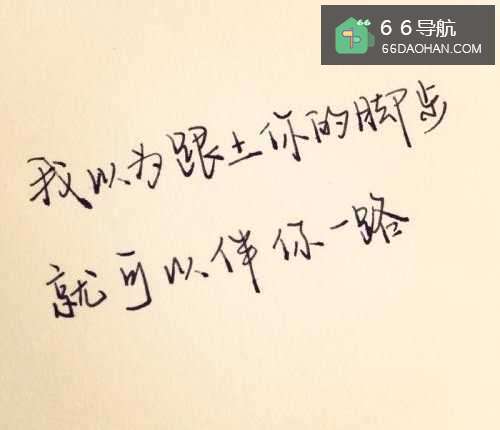 66导航
66DAOHAN.COM
我以为跟上你的脚步
就可以伴你一路